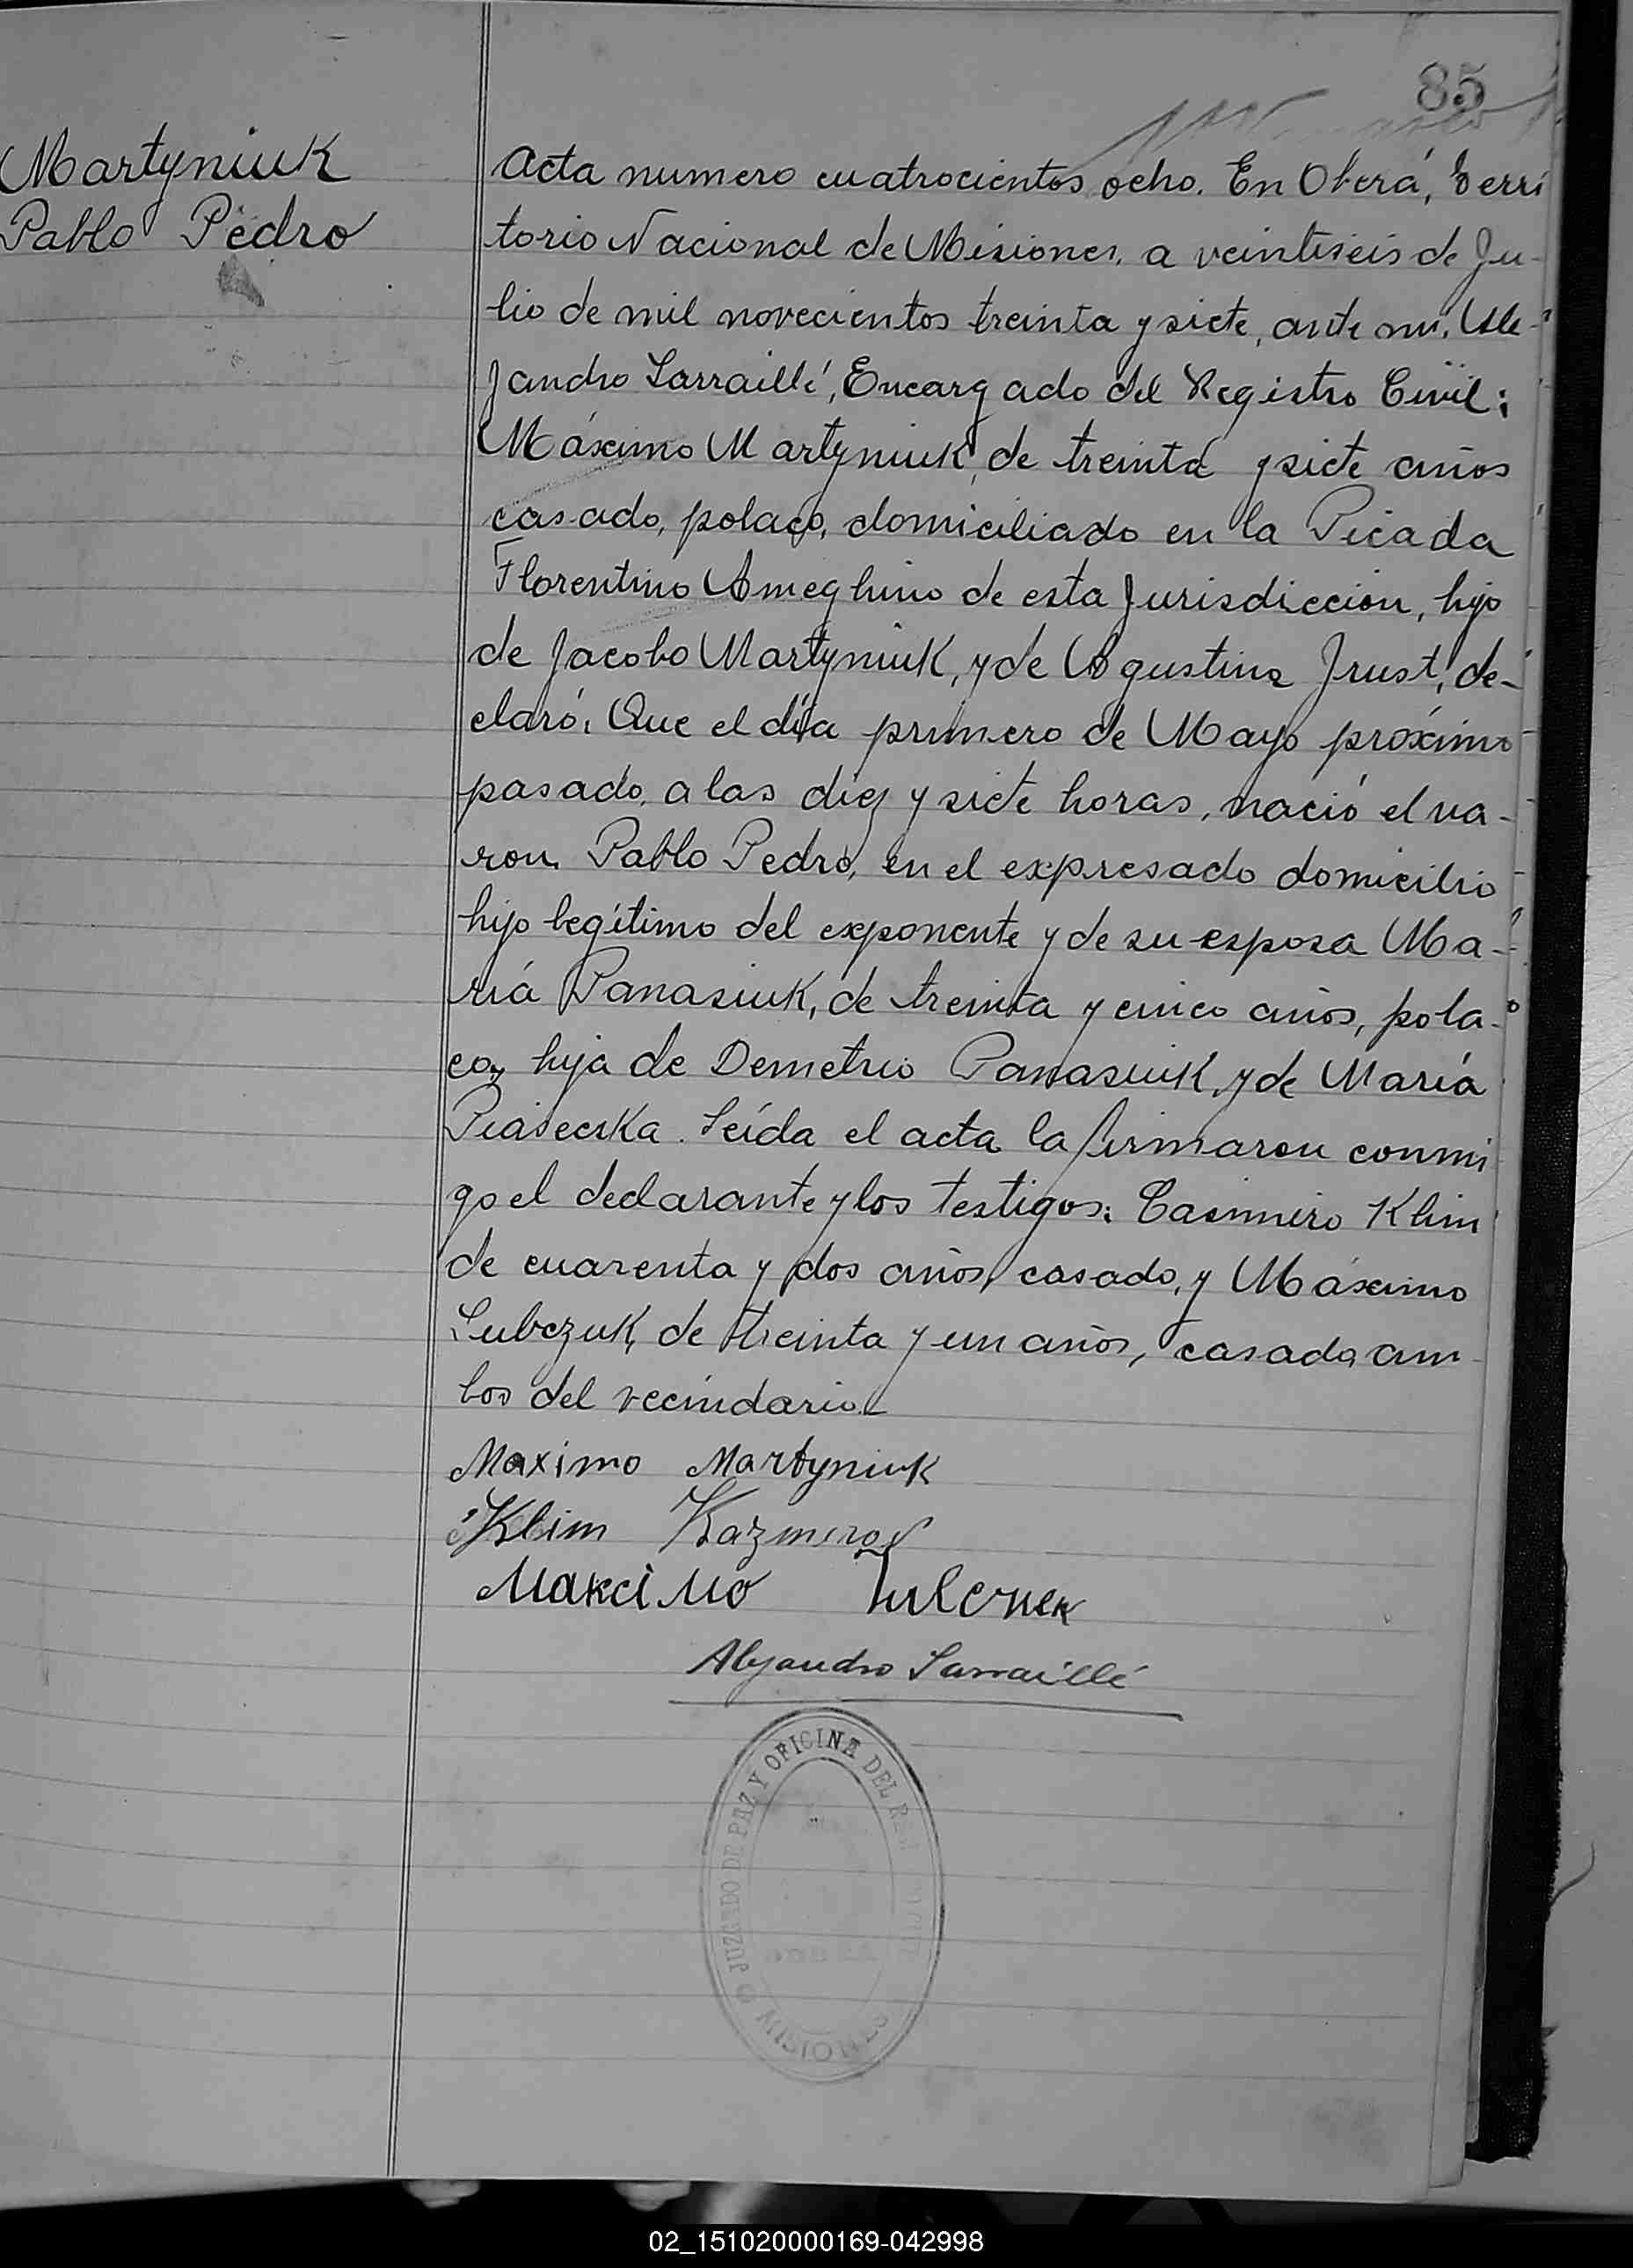 85
Martyniuk
Pablo Pedro
Acta numero cuatrocientos ocho. En Oberá, Terri
torio Nacional de Misiones, a veintiseis de Ju-
lio de mil novecientos treinta y siete, ante mi, Ale-
jandro Sarraillé, Encargado del Registro Civil:
Máximo Martyniuk, de treinta y siete años
casado, polaco, domiciliado en la Picada
Florentino Ameghino de esta Jurisdiccion, hijo
de Jacobo Martyniuk, y de Agustina Jrust, de-
claró: Que el día primero de Mayo próximo
pasado, a las diez y siete horas, nació el va-
ron Pablo Pedro, en el expresado domicilio
hijo legítimo del exponente y de su esposa Ma-
ría Panasiuk, de treinta y cinco años, pola-
ca, hija de Demetrio Panasiuk, y de María
Piasecska. Leída el acta la firmaron conmi
go el declarante y los testigos: Casimiro Klim
de cuarenta y dos años, casado, y Máximo
Lubczuk, de treinta y un años, casado, am-
bos del vecindario.
Maximo Martyniuk
Klim Kazmeros
Максімо
Alejandro Sarraillé
JUZGADO DE PAZ Y OFICINA DEL
MISIONES
02_151020000169-042998